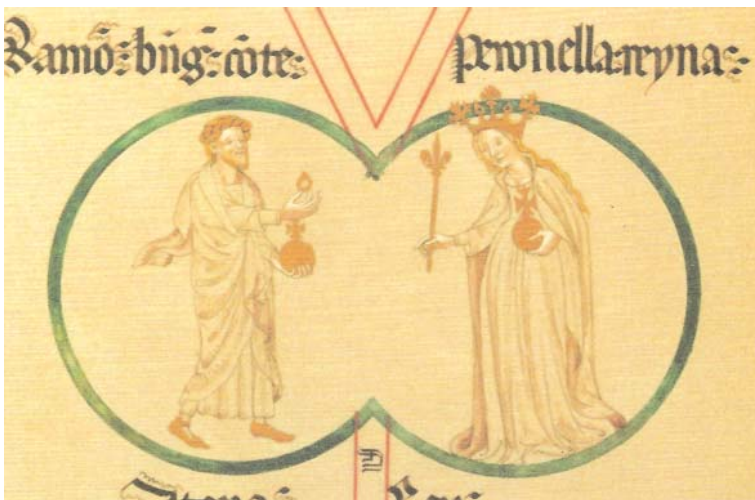 Ramō: bñg̃: cōte: peronella: reyna: